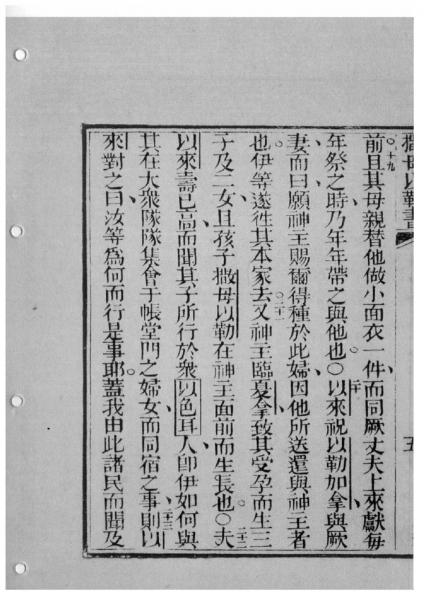 撒母以勒書 五
前十九且其母親替他做小面衣一件而同厥丈夫上來獻每
年祭之時乃年年帶之與他也○二十以來祝以勒加拿與厥
妻而曰願神主賜爾得種於此婦因他所送還與神主者
也伊等遂徃其本家去二十一又神主臨夏拿致其受孕而生三
子及二女且孩子撒母以勒在神主面前而生長也○二十二夫
以來壽已高而聞其子所行於衆以色耳人卽伊如何與
其在大衆隊隊集會于帳堂門之婦女而同宿之事二十三則以
來對之曰汝等爲何而行是事耶蓋我由此諸民而聞及